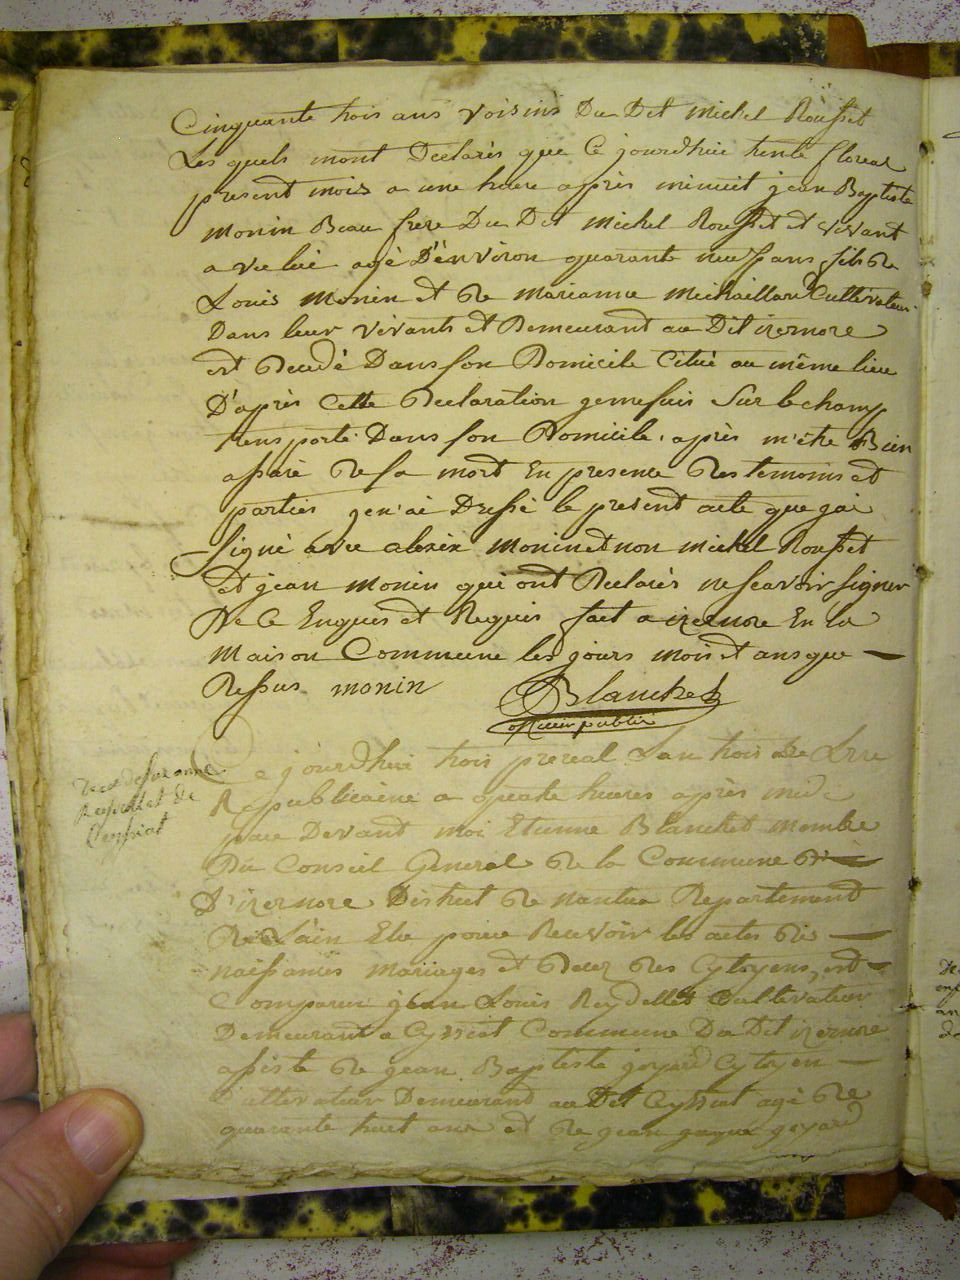 Cinquante trois ans voisins Du Dit michel Rousset
Les quels mont Declarés que Ce jourdhuie trente floreal
present mois a une heure après minuit jean Baptiste
monin Beau frere Du Dit Michel Rousset et vivant
avec lui agé D'énviron quarante neuf ans fils de
Louis Monin et de Marianne Michaillard Cultivateur
Dans leur vivants et Demeurant au Dit izernore
est Decedé Dans son Domicile Citué au même lieu
D'après Cette Declaration je me suis Sur le champ
transporté Dans son Domicile, après m'être Bien
assuré de sa mort En presence des temoins et
parties jen'ai Dressé le present acte que jai
Signé avec alexix monin et non michel Rousset
et jean monin qui ont Declarés ne scavoir signer
De Ce Enquis et Requis fait a izernore En la
Maison Commune les jours mois et ans que
Dessus monin Blanchet
officier public
Ce jourdhui trois prereal Lan trois de Lere
Republicaine a quatre heures après midi
pare Devant moi Etienne Blanchet membre
Du Conseil General de la Commune D'
D'izernore District de nantua Departement
De Lain Elu pour Recevoir les actes des
naissances mariages et decez des Cytoyens, est
Comparu jean Louis Reydellet Cultivateur
Demeurant a Cyssiat Commune Du Dit izernore
assisté de jean Baptiste goyard Cytoyen
Cultivateur Demeurand au Dit Ceyssiat agé de
quarante huit ans et de jean goyard
de Suzanne
Reydellet de
Ceyssiat